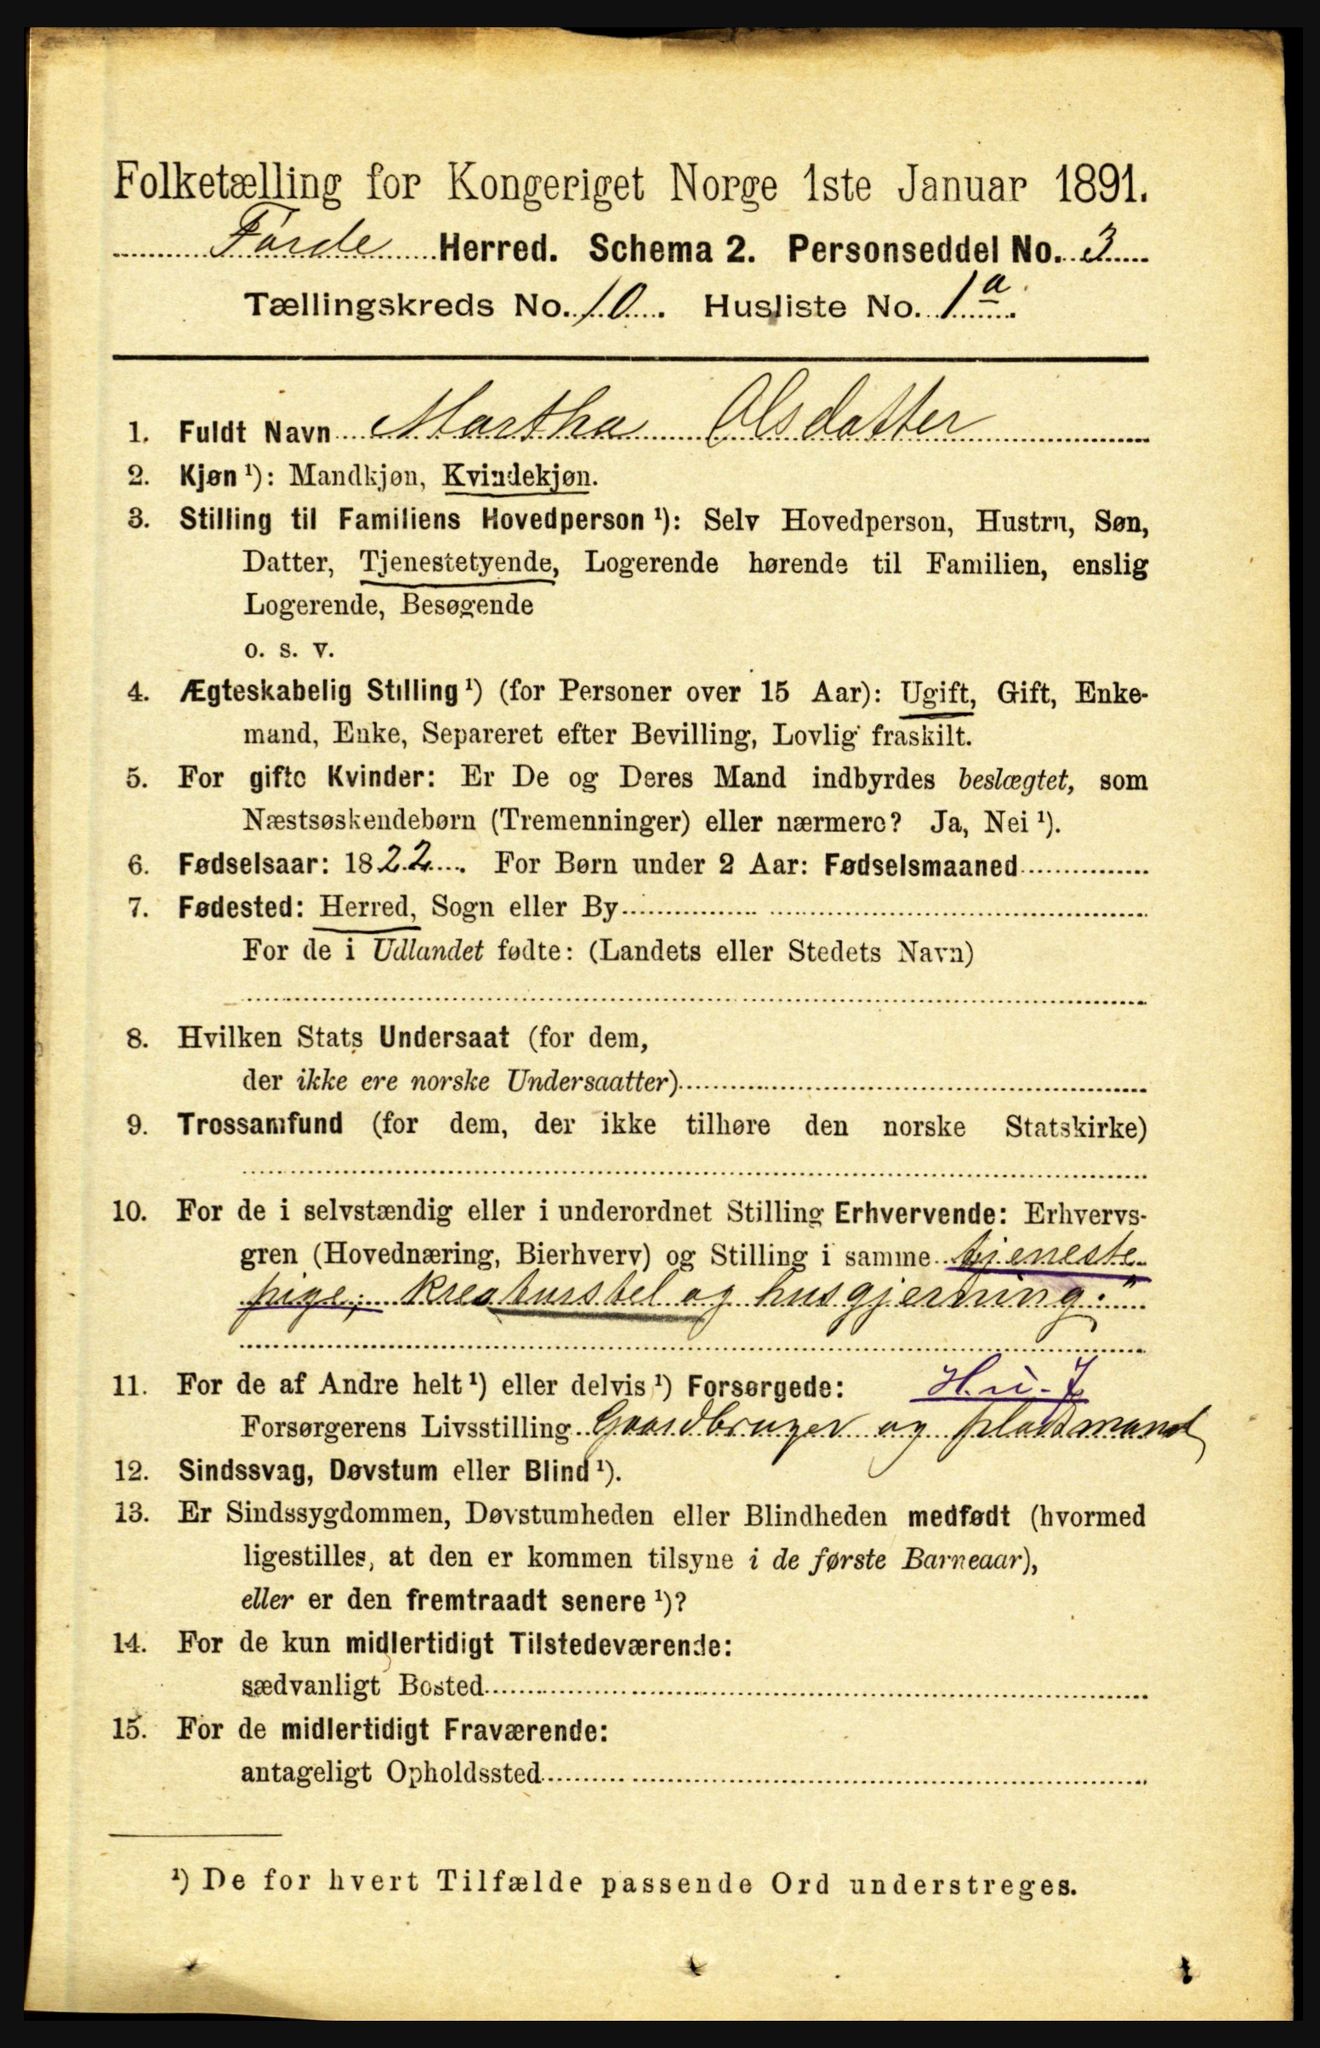 Folketælling for Kongeriget Norge 1ste Januar 1891.
Førde Herred. Schema 2. Personseddel No. 3
Tællingskreds No. 10. Husliste No. 1a.
1. Fuldt Navn Martha Olsdatter
2. Kjøn ¹): Mandkjøn, Kvindekjøn.
3. Stilling til Familiens Hovedperson ¹): Selv Hovedperson, Hustru, Søn,
Datter, Tjenestetyende, Logerende hørende til Familien, enslig
Logerende, Besøgende
o. s. v.
4. Ægteskabelig Stilling ¹) (for Personer over 15 Aar): Ugift, Gift, Enke-
mand, Enke, Separeret efter Bevilling, Lovlig fraskilt.
5. For gifte Kvinder: Er De og Deres Mand indbyrdes beslægtet, som
Næstsøskendebørn (Tremenninger) eller nærmere? Ja, Nei ¹).
6. Fødselsaar: 1822. For Børn under 2 Aar: Fødselsmaaned
7. Fødested: Herred, Sogn eller By
For de i Udlandet fødte: (Landets eller Stedets Navn)
8. Hvilken Stats Undersaat (for dem,
der ikke ere norske Undersaatter)
9. Trossamfund (for dem, der ikke tilhøre den norske Statskirke)
10. For de i selvstændig eller i underordnet Stilling Erhvervende: Erhvervs-
gren (Hovednæring, Bierhverv) og Stilling i samme tjeneste-
pige; kreaturstel og husgjerning."
11. For de af Andre helt ¹) eller delvis ¹) Forsørgede: H. u. J
Forsørgerens Livsstilling Gaardbruger og pladsmand
12. Sindssvag, Døvstum eller Blind ¹).
13. Er Sindssygdommen, Døvstumheden eller Blindheden medfødt (hvormed
ligestilles, at den er kommen tilsyne i de første Barneaar),
eller er den fremtraadt senere ¹)?
14. For de kun midlertidigt Tilstedeværende:
sædvanligt Bosted
15. For de midlertidigt Fraværende:
antageligt Opholdssted
¹) De for hvert Tilfælde passende Ord understreges.